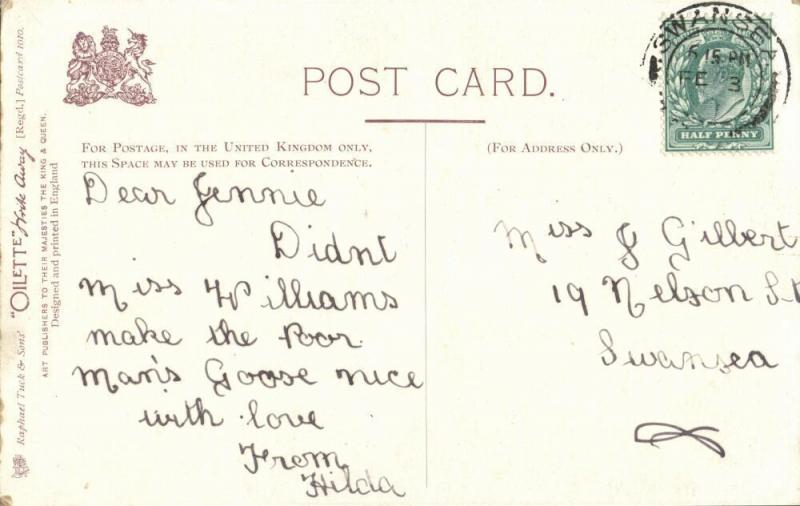 POST CARD.
FOR POSTAGE, IN THE UNITED KINGDOM ONLY,
THIS SPACE MAY BE USED FOR CORRESPONDENCE.
(FOR ADDRESS ONLY.)
Dear Jennie
Didnt
Miss Williams
make the Poor
Man's Goose nice
with love
From
Hilda
Miss J Gilbert
19 Nelson St
Swansea
SWANSEA
5 15 PM
FE 3
HALF PENNY
Raphael Tuck & Sons' "OILETTE" Write Away [Regd.] Postcard 1010.
ART PUBLISHERS TO THEIR MAJESTIES THE KING & QUEEN.
Designed and printed in England